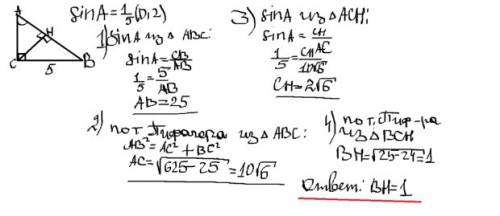 A
H
C
5
B
sin A = 1/5 (0,2)
1) sin A из △ ABC:
sin A = CB/AB
1/5 = 5/AB
AB = 25
2) по т. Пифагора из △ ABC:
AB² = AC² + BC²
AC = √625-25 = 10√6
3) sin A из △ ACH:
sin A = CH/AC
1/5 = CH/10√6
CH = 2√6
4) по т. Пиф-ра
из △ BCH
BH = √25-24 = 1
Ответ: BH = 1